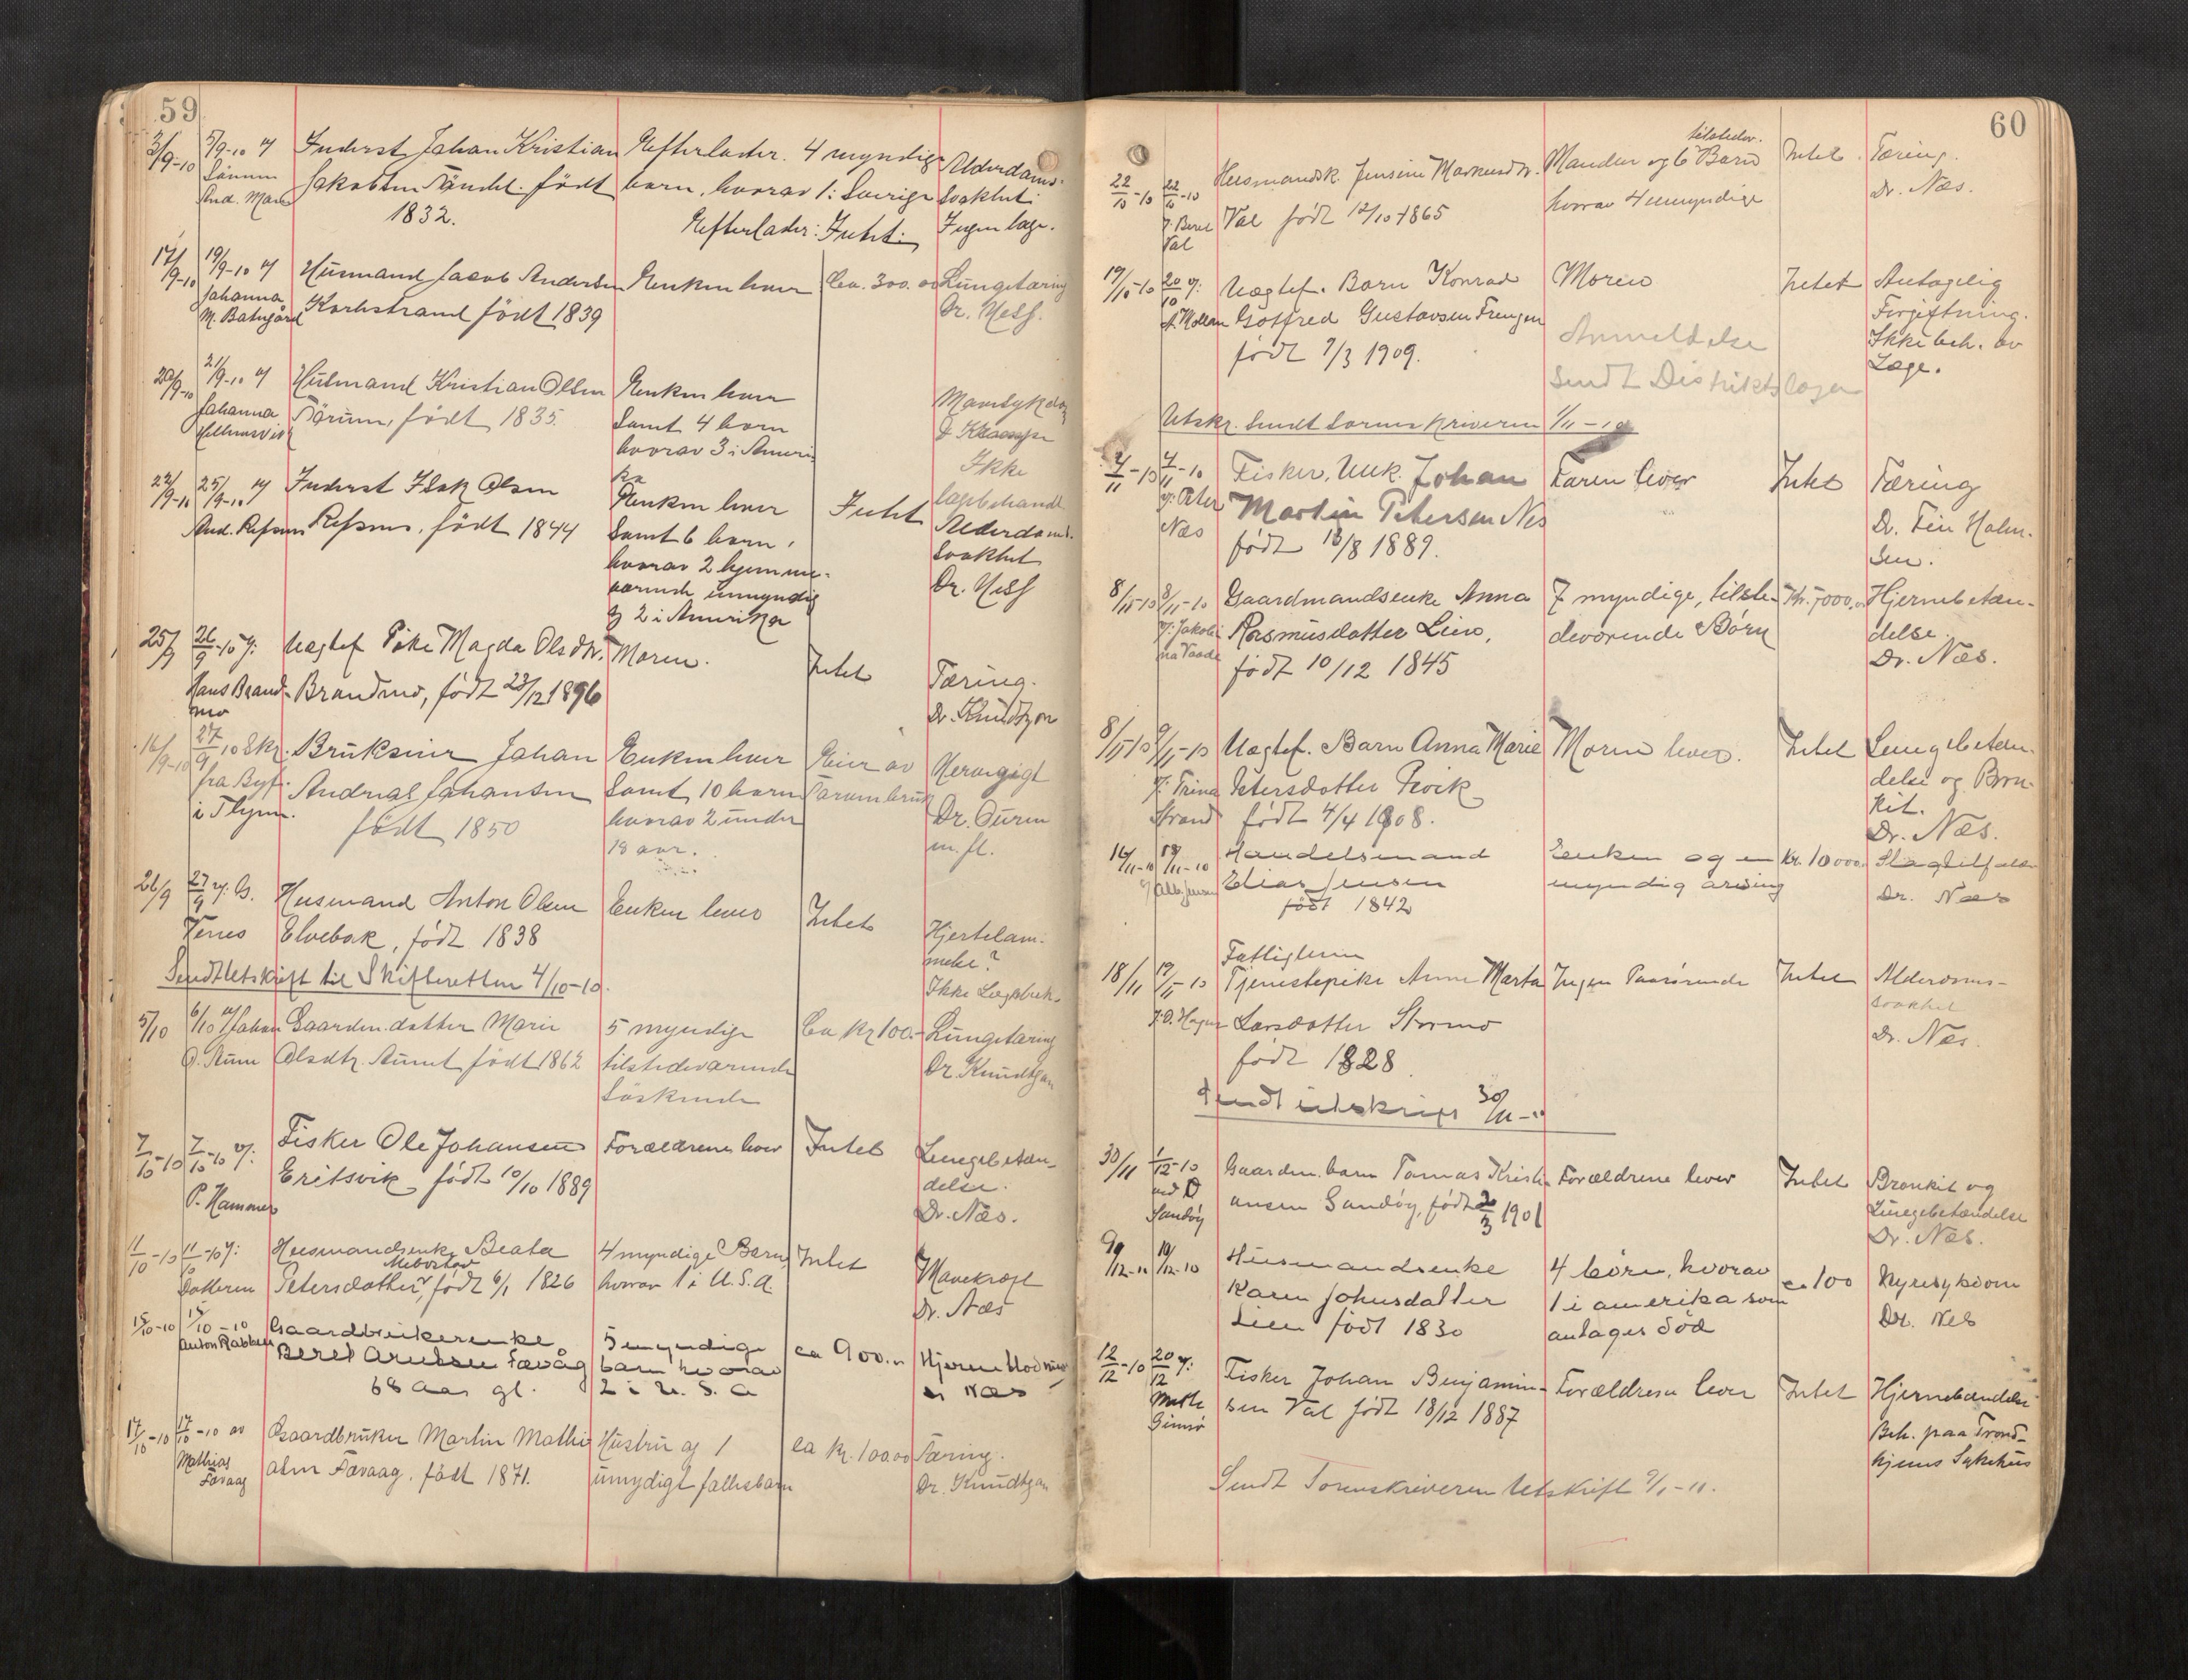 59
3/9-10 5/9-10 v/ Inderst Johan Kristian Efterlader. 4 myndige Alderdoms-
Sønnen Jakobsen født barn, hvorav 1 i Sverige svakhet
And. 1832. Efterlader: Intet Ingen læge.
17/9-10 19/9-10 v/ Husmand Jacob Andersen Enken lever Ca. 300.00 Lungetæring
Johanna født 1839 Dr.
M.
20/9-10 21/9-10 v/ Husmand Kristian Olsen Enken lever Mavesykdom
Johanna født 1835. samt 4 barn
hvorav 3 i Ameri- Ikke
ka lægebehandl
22/9-10 25/9-10 v/ Inderst Isak Olsen Enken lever Intet Alderdoms-
And. Refsnes Refsnes, født 1844 samt 6 barn, svakhet
hvorav 2 hjemme- Dr.
værende umyndig
og 2 i Amerika
25/9 26/9-10 v: Uægtef Pike Magda Olsdtr. Moren. Intet Tæring.
Hans Brand- Brandmo, født 23/12 1896 Dr. Knudtzon
mo
16/9-10 27/9 10 Skr. Brukseier Johan Enken lever Eier av
fra Byf. Andreas Johansen samt 10 barn Dr.
i Thjem. født 1850 hvorav 2 under m.fl.
18 aar.
26/9 27/9 v: Husmand Anton Olsen Enken lever Intet Hjertelam-
Elvebak, født 1838 melse?
Sendt Utskrift til Skifteretten 4/10-10. Ikke Lægebeh.
5/10 6/10 v/ Johan Gaardm. datter Marie 5 myndige Ca kr 100.- Lungetæring
O. Olsdtr. født 1862 tilstedeværende Dr. Knudtzon
Søskende
7/10-10 7/10-10 v/: Fisker Ole Johansen Forældrene lever Intet Lungebetæn-
P. Hammer født 10/10 1889 delse.
Dr. Næs.
11/10-10 11/10-10 v: Husmandsenke Beata 4 myndige Barn Intet Mavekræft
Datteren Petersdatter, født 6/1 1826 hvorav 1 i U.S.A. Dr. Næs
15/10-10 15/10-10 Gaardbrukerenke 5 myndige ca 900.00
Anton Rabben Beret Arntsen Fævåg barn hvorav Dr Næs
68 Aar gl. 2 i U.S.A
17/10-10 17/10-10 av Gaardbruker Martin Mathi Hustru og 1 ca kr. 1000.00 Tæring.
Mathias Fævaag. født 1871. umyndigt fællesbarn Dr. Knudtzon
Fævaag
60
tilstedev.
22/10-10 22/10-10 Husmandsk. Jensine Markusdtr. Manden og 6 Barn Intet. Tæring.
v: Beret Val født 12/10 1865 hvorav 4 umyndige Dr. Næs.
Val
19/10-10 20/10 v: Uægtef. Barn Konrad Moren Intet Antagelig
Gotfred Gustavsen Frengen Anmeldelse Forgiftning.
født 7/3 1909. sendt Distriktslægen Ikke beh. av
Læge.
Utskr. sendt Sorenskriveren 1/11-10
4/11-10 4/11-10 Fisker, Unk. Johan Faren lever Intet Tæring
v: Peter Martin Petersen Nes Dr. Fin Holm-
Næs født 18/8 1889. sen.
8/11-10 8/11-10 Gaardmandsenke Anna 7 myndige, tilste- Kr. 7000,00 Hjernebetæn-
v: Jakobi Rasmusdatter Lien, deværende Børn delse.
na Vaade født 10/12 1845 Dr. Næs.
8/11-10 9/11-10 Uægtef. Barn Anna Marie Moren lever. Intet Lungebetæn-
v: Trina Petersdatter delse og Bron-
Strand født 4/4 1908. kit.
Dr. Næs.
16/11-10 18/11-10 Handelsmand Enken og en Kr. 10000. Slagtilfælde
v/ Alb. Jensen Elias Jensen myndig arving Dr. Næs
født 1842
Fattiglem
18/11 19/11-10 Tjenestepike Anne Marta Ingen Paarørende Intet Alderdoms-
v: O. Larsdatter Stormo svakhet
født 1828 Dr. Næs.
Sendt utskrift 30/11-10
30/11 1/12-10 Gaardm. barn Tomas Kristi- Forældrene lever Intet Bronkit og
ved O ansen Sandøy, født 20/3 1901 Lungebetændelse
Sandøy Dr. Næs.
9/12-10 10/12-10 Husmandsenke 4 børn, hvorav ca 100 Nyresykdom
Karen Johnsdatter 1 i amerika som Dr. Nes
Lien født 1830 antages død
12/12-10 20/12 v: Fisker Johan Benjamin- Forældrene lever Intet Hjernebetændelse
sen Val født 18/12 1887 Beh. paa Trond-
hjems Sykehus
Sendt Sorenskriveren Utskrift 9/1-11.